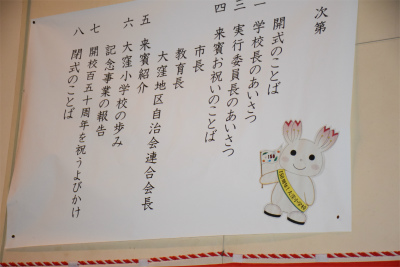 次第
一 開式のことば
二 学校長のあいさつ
三 実行委員長のあいさつ
四 来賓お祝いのことば
市長
教育長
大窪地区自治会連合会長
五 来賓紹介
六 大窪小学校の歩み
記念事業の報告
七 開校百五十周年を祝うよびかけ
八 閉式のことば